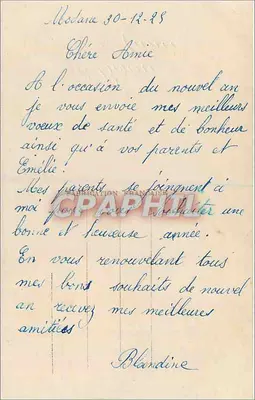 Modane 30-12-25
Chère Amie
A l'occasion du nouvel an
je vous envoie mes meilleurs
voeux de santé et de bonheur
ainsi qu'à vos parents et
Emilie.
Mes parents se joingnent à
moi pour vous souhaiter une
CARTE POSTALE
bonne et heureuse année.
En vous renouvelant tous
mes bons souhaits de nouvel
an recevez mes meilleures
amitiées
Blandine